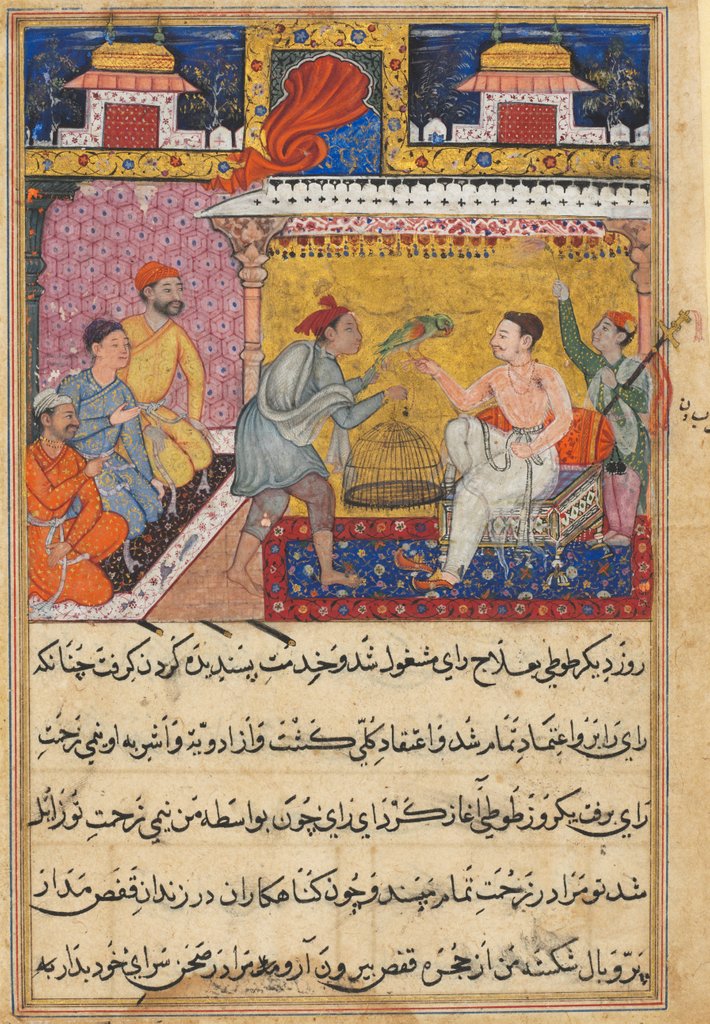 روز دیگر طوطی بعلاج رای مشغول شد و خدمت پسندیده کردن گرفت چنانکه
رای را برو اعتماد تمام شد و اعتقاد کلی گشت و از ادویه و اشربه او نیمی زحمت
رای برفت یکروز طوطی آغاز کرد ای رای چون بواسطه من نیمی زحمت تو زایل
شد تو مرا در زحمت تمام مپسند و چون گناهکاران در زندان قفص مدار
پر و بال شکسته من از حجره قفص بیرون آر و مرا در صحن سرای خود بدار به